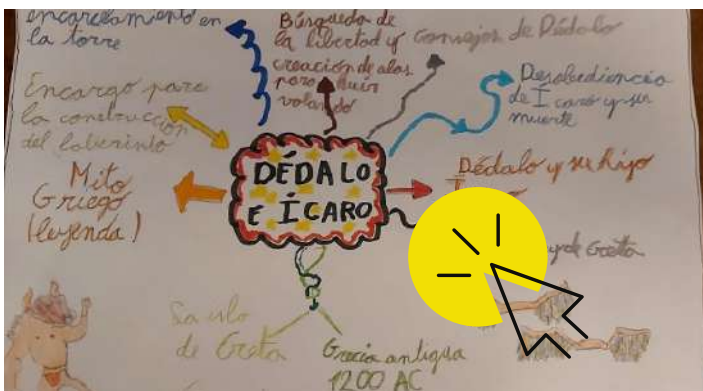 encarcelamiento en
la torre
Búsqueda de
la libertad y
creación de alas
para huir
volando
Consejos de Dédalo
Desobediencia
de Ícaro y su
muerte
Encargo para
la construcción
del laberinto
Mito
Griego
(leyenda)
DÉDALO
E ÍCARO
Dédalo y su hijo
de Creta
de Creta
Grecia antigua
1200 AC